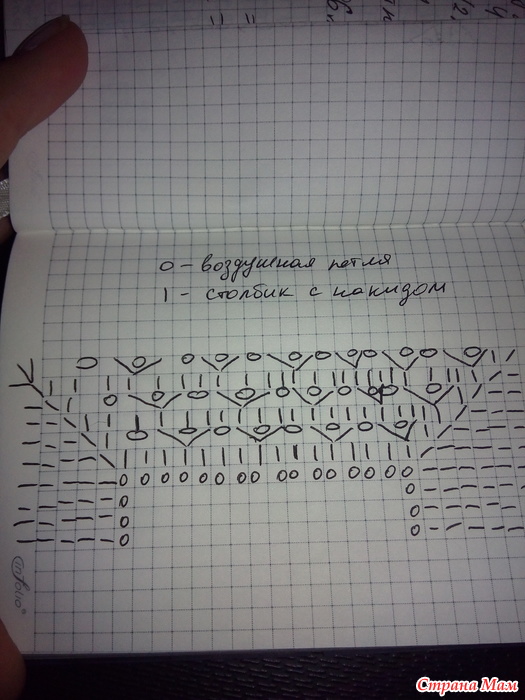 0 - воздушная петля
1 - столбик с накидом
infolio
Страна Мам